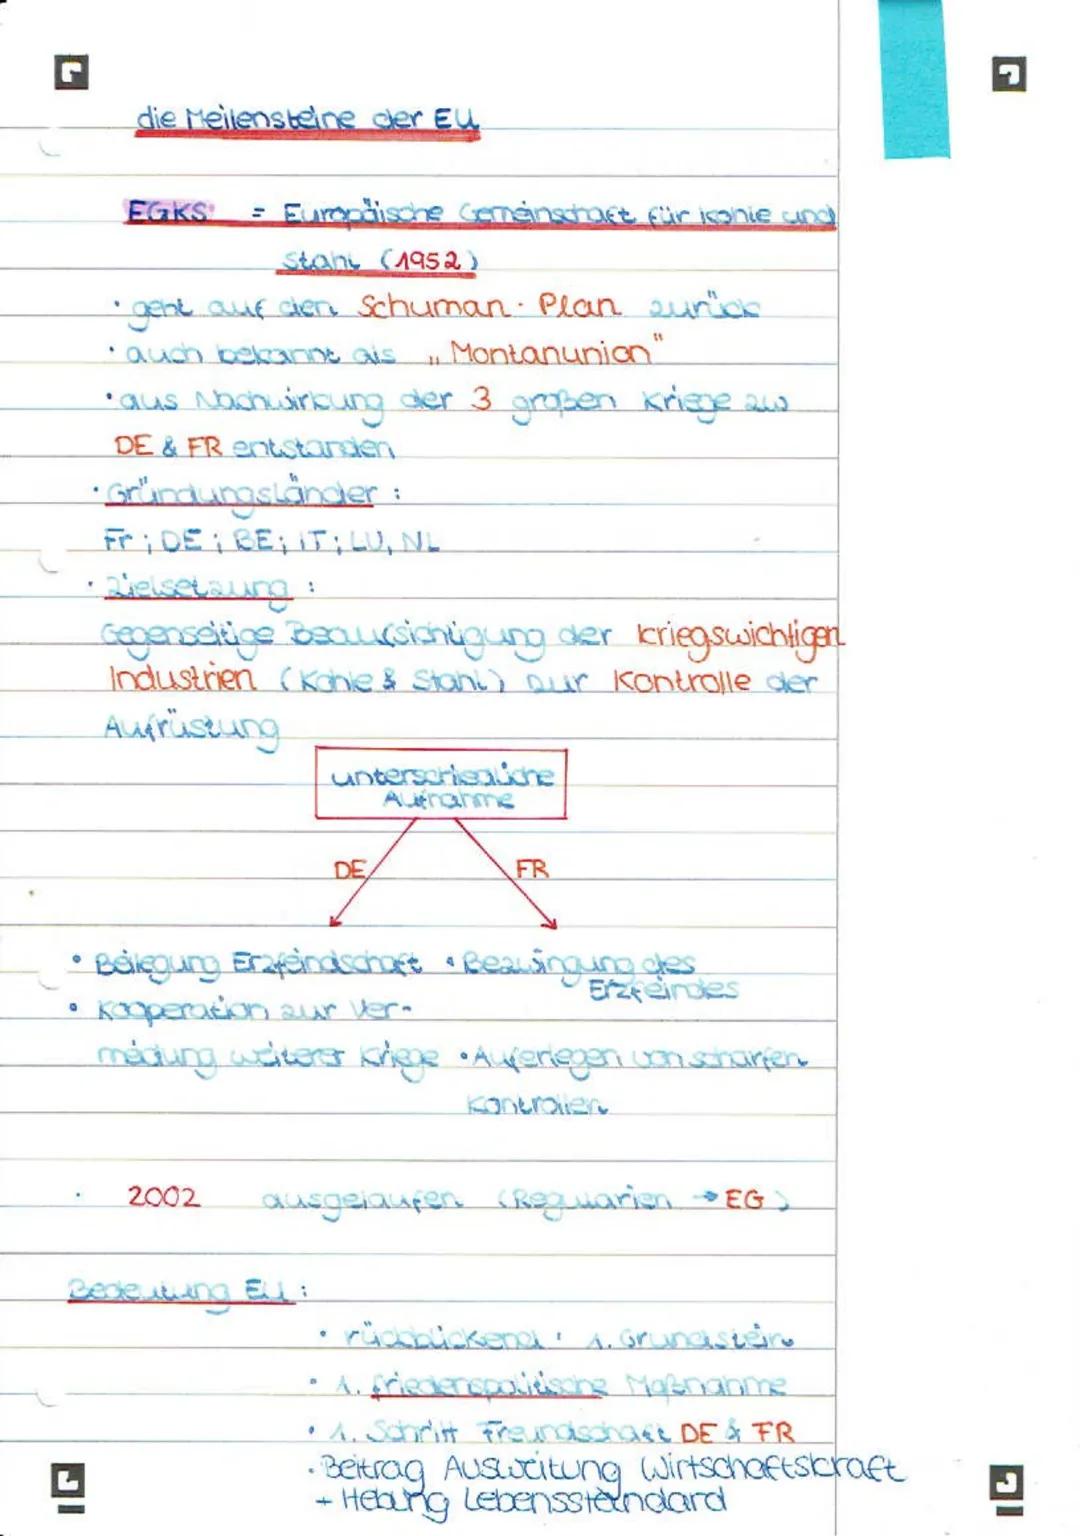 die Meilensteine der EU
EGKS = Europäische Gemeinschaft für Kohle und
Stahl (1952)
• geht auf den Schuman-Plan zurück
• auch bekannt als „Montanunion"
• aus Nachwirkung der 3 großen Kriege zw
DE & FR entstanden
• Gründungsländer :
Fr ; DE ; BE ; IT ; LU, NL
• Zielsetzung :
Gegenseitige Beaufsichtigung der kriegswichtigen
Industrien (Kohle & Stahl) zur Kontrolle der
Aufrüstung
unterschiedliche
Aufnahme
DE FR
• Beilegung Erzfeindschaft • Bezwingung des
Erzfeindes
• Kooperation zur Ver-
meidung weiterer Kriege • Auferlegen von scharfen
Kontrollen
• 2002 ausgelaufen (Regularien → EG)
Bedeutung EU :
• rückblickend 1. Grundstein
• 1. friedenspolitische Maßnahme
• 1. Schritt Freundschaft DE & FR
• Beitrag Ausweitung Wirtschaftskraft
+ Hebung Lebensstandard